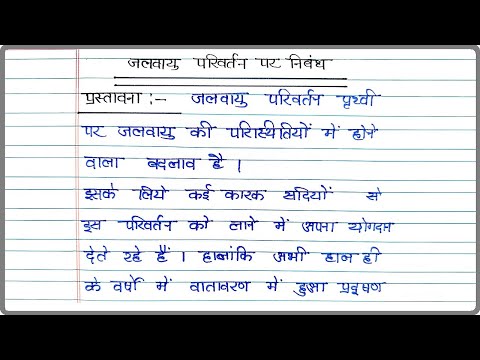 जलवायु परिवर्तन पर निबंध
प्रस्तावना :- जलवायु परिवर्तन पृथ्वी
पर जलवायु की परिस्थितियों में होने
वाला बदलाव है ।
इसके लिये कई कारक सदियों से
इस परिवर्तन को लाने में अपना योगदान
देते रहे हैं । हालांकि अभी हाल ही
के वर्षों में वातावरण में हुआ प्रदूषण